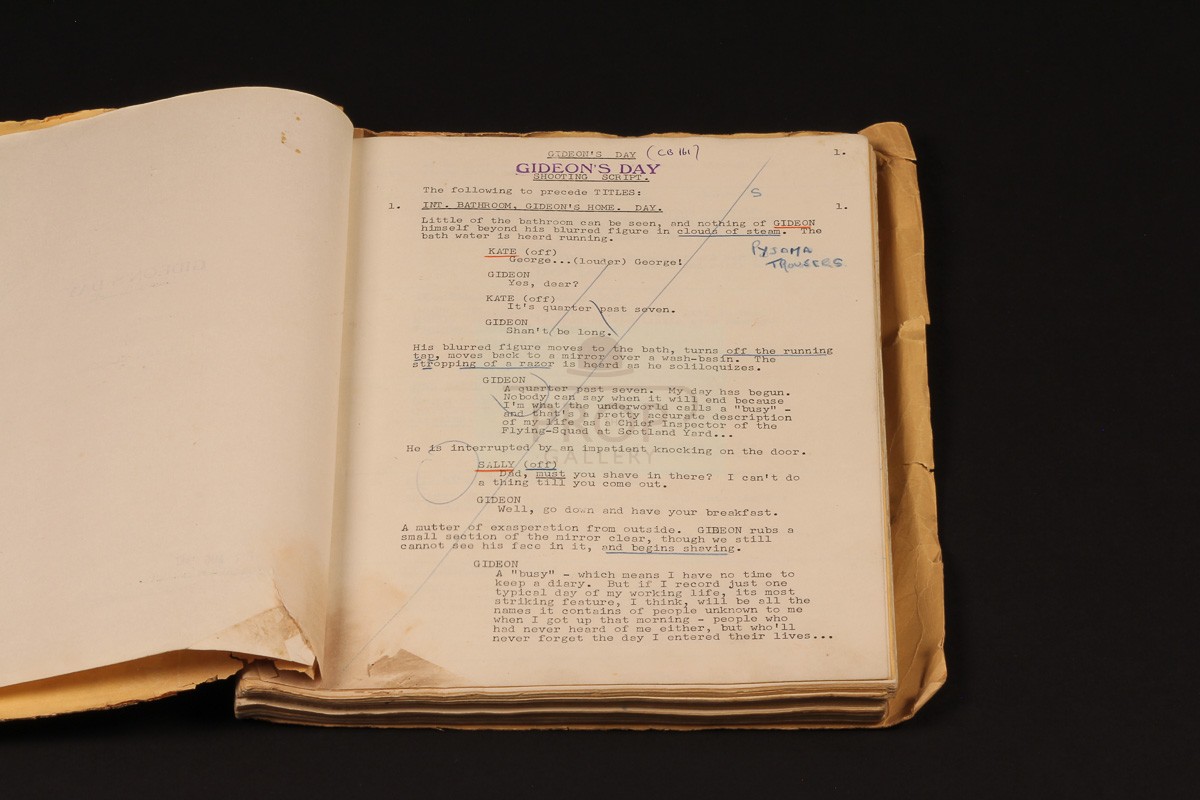 GIDEON'S DAY (CB 161) 1.
GIDEON'S DAY
SHOOTING SCRIPT.
The following to precede TITLES: S
1. INT. BATHROOM, GIDEON'S HOME. DAY. 1.
Little of the bathroom can be seen, and nothing of GIDEON
himself beyond his blurred figure in clouds of steam. The
bath water is heard running.
PYJAMA
TROUSERS
KATE (off)
George...(louder) George!
GIDEON
Yes, dear?
KATE (off)
It's quarter past seven.
GIDEON
Shan't be long.
His blurred figure moves to the bath, turns off the running
tap, moves back to a mirror over a wash-basin. The
stropping of a razor is heard as he soliloquizes.
GIDEON
A quarter past seven. My day has begun.
Nobody can say when it will end because
I'm what the underworld calls a "busy" -
and that's a pretty accurate description
of my life as a Chief Inspector of the
Flying-Squad at Scotland Yard...
PROP
GALLERY
He is interrupted by an impatient knocking on the door.
SALLY (off)
Dad, must you shave in there? I can't do
a thing till you come out.
GIDEON
Well, go down and have your breakfast.
A mutter of exasperation from outside. GIBEON rubs a
small section of the mirror clear, though we still
cannot see his face in it, and begins shaving.
GIDEON
A "busy" - which means I have no time to
keep a diary. But if I record just one
typical day of my working life, its most
striking feature, I think, will be all the
names it contains of people unknown to me
when I got up that morning - people who
had never heard of me either, but who'll
never forget the day I entered their lives...